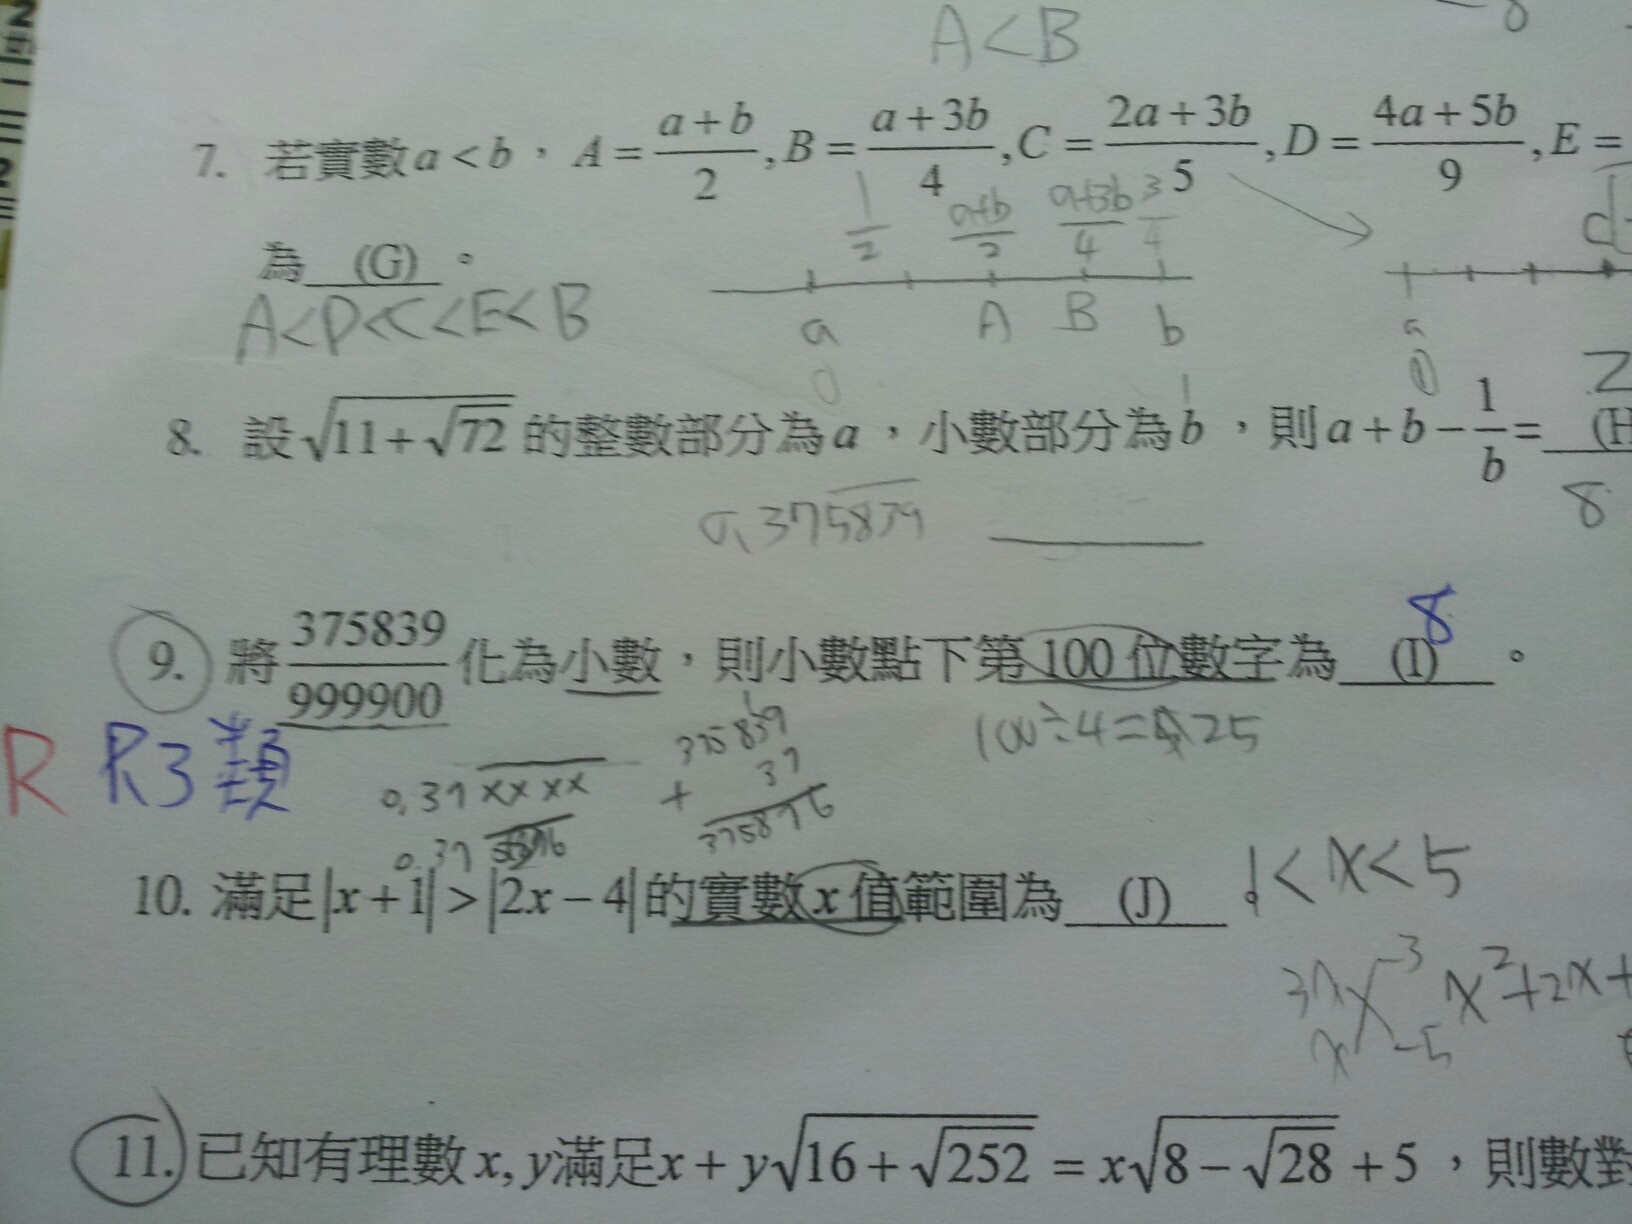 A<B
7. 若實數 a < b，A = \frac{a+b}{2}, B = \frac{a+3b}{4}, C = \frac{2a+3b}{5}, D = \frac{4a+5b}{9}, E =
\frac{1}{2} \frac{a+b}{2} \frac{a+3b}{4} \frac{3}{4}
為 (G) 。
A<D<C<E<B
a A B b
a
0 1
8. 設 \sqrt{11+\sqrt{72}} 的整數部分為 a，小數部分為 b，則 a + b - \frac{1}{b} = (H
8
0.375839
8
9. 將 \frac{375839}{999900} 化為小數，則小數點下第 100 位數字為 (I) 。
R R3類
100÷4=25
0.37xxxx
375839
+ 37
375876
0.37 5876
10. 滿足 |x+1| > |2x-4| 的實數 x 值範圍為 (J)
1<x<5
3x -3
x -5
x²+2x+
11. 已知有理數 x, y 滿足 x + y\sqrt{16+\sqrt{252}} = x\sqrt{8-\sqrt{28}} + 5，則數對